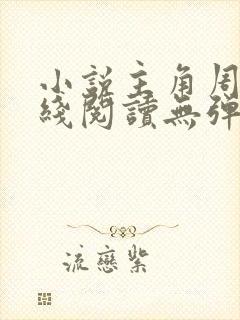 小說主角周
綫閱讀無彈
流戀紫